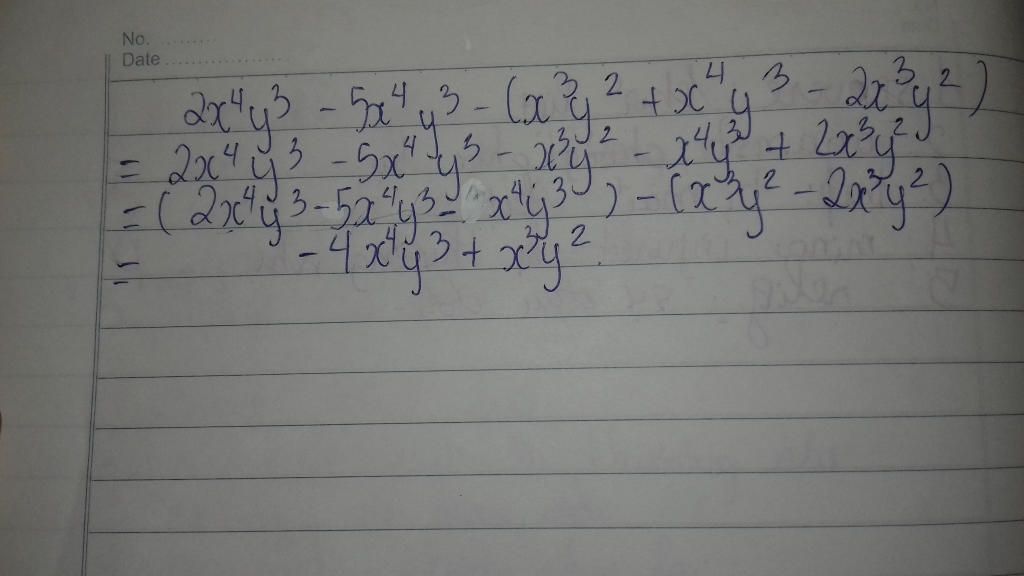 No. ..........
Date ....................
2x⁴y³ - 5x⁴y³ - (x³y² + x⁴y³ - 2x³y²)
= 2x⁴y³ - 5x⁴y³ - x³y² - x⁴y³ + 2x³y²
= (2x⁴y³ - 5x⁴y³ - x⁴y³) - (x³y² - 2x³y²)
= -4x⁴y³ + x³y²